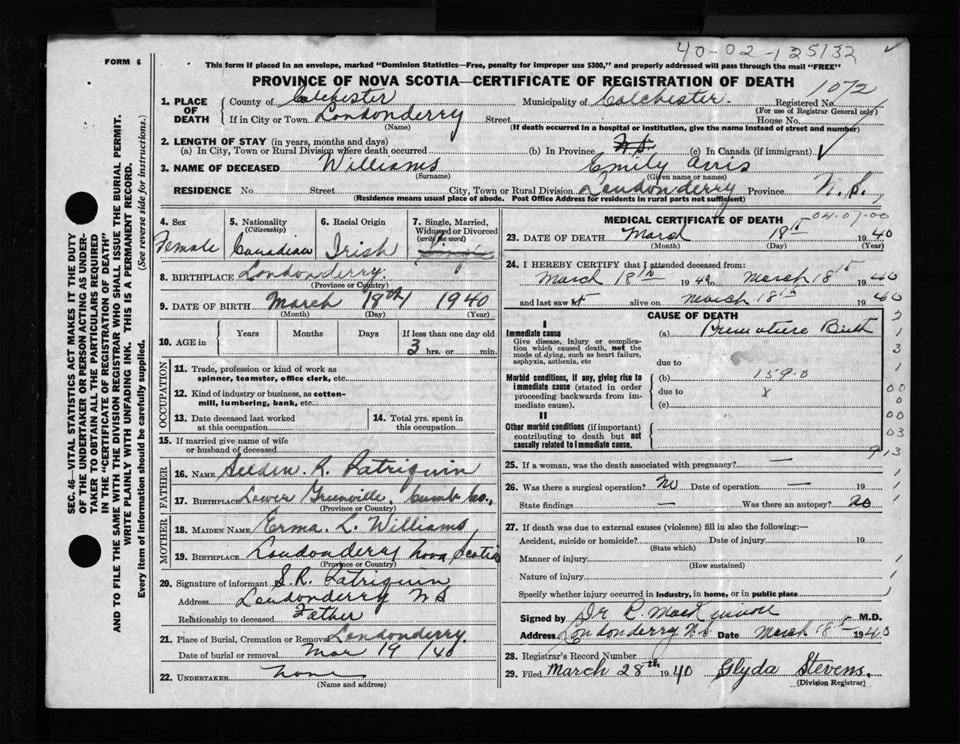 40-02-125132
FORM 6
This form if placed in an envelope, marked "Dominion Statistics—Free, penalty for improper use $300," and properly addressed will pass through the mail "FREE"
PROVINCE OF NOVA SCOTIA—CERTIFICATE OF REGISTRATION OF DEATH
1072
1. PLACE OF DEATH { County of Colchester Municipality of Colchester. Registered No.
(For use of Registrar General only)
If in City or Town Londonderry Street House No.
(Name) (If death occurred in a hospital or institution, give the name instead of street and number)
2. LENGTH OF STAY (in years, months and days)
(a) In City, Town or Rural Division where death occurred (b) In Province N.S. (c) In Canada (if immigrant)
3. NAME OF DECEASED Williams Emily
(Surname) (Given name or names)
RESIDENCE No. Street City, Town or Rural Division Londonderry Province N.S.
(Residence means usual place of abode. Post Office Address for residents in rural parts not sufficient)
SEC. 46—VITAL STATISTICS ACT MAKES IT THE DUTY
OF THE UNDERTAKER OR PERSON ACTING AS UNDER-
TAKER TO OBTAIN ALL THE PARTICULARS REQUIRED
IN THE "CERTIFICATE OF REGISTRATION OF DEATH"
AND TO FILE THE SAME WITH THE DIVISION REGISTRAR WHO SHALL ISSUE THE BURIAL PERMIT.
WRITE PLAINLY WITH UNFADING INK. THIS IS A PERMANENT RECORD.
Every item of information should be carefully supplied. (See reverse side for instructions.)
4. Sex
Female
5. Nationality
(Citizenship)
Canadian
6. Racial Origin
Irish
7. Single, Married,
Widowed or Divorced
(write the word)
Single
8. BIRTHPLACE Londonderry.
(Province or Country)
9. DATE OF BIRTH March 18th 1940
(Month) (Day) (Year)
10. AGE in Years Months Days If less than one day old
3 hrs. or min.
OCCUPATION
11. Trade, profession or kind of work as
spinner, teamster, office clerk, etc.
12. Kind of industry or business, as cotton-
mill, lumbering, bank, etc.
13. Date deceased last worked
at this occupation
14. Total yrs. spent in
this occupation
15. If married give name of wife
or husband of deceased
FATHER
16. NAME R. Patriquin
17. BIRTHPLACE Lower Greenville, Cumb Co.,
(Province or Country)
MOTHER
18. MAIDEN NAME Erma. L. Williams
19. BIRTHPLACE Londonderry Nova Scotia
(Province or Country)
20. Signature of informant S.R. Patriquin
Address Londonderry N S
Relationship to deceased Father
21. Place of Burial, Cremation or Removal Londonderry.
Date of burial or removal Mar 19 /40
22. UNDERTAKER none
(Name and address)
MEDICAL CERTIFICATE OF DEATH
04-07-00
23. DATE OF DEATH March 18th 1940
(Month) (Day) (Year)
24. I HEREBY CERTIFY that I attended deceased from:
March 18th 1940 to March 18th 1940
and last saw alive on March 18th 1940
CAUSE OF DEATH
I
Immediate cause
Give disease, injury or complica-
tion which caused death, not the
mode of dying, such as heart failure,
asphyxia, asthenia, etc
(a) Premature Birth
due to
Morbid conditions, if any, giving rise to
immediate cause (stated in order
proceeding backwards from im-
mediate cause).
(b) 159.0
due to x
(c)
II
Other morbid conditions (if important)
contributing to death but not
causally related to immediate cause.
2
1
3
1
00
00
00
03
9 13
25. If a woman, was the death associated with pregnancy? —
26. Was there a surgical operation? No Date of operation — 19
State findings — Was there an autopsy? no
27. If death was due to external causes (violence) fill in also the following:—
Accident, suicide or homicide? Date of injury 19
(State which)
Manner of injury
(How sustained)
Nature of injury
Specify whether injury occurred in industry, in home, or in public place
Signed by Dr M.D.
Address Londonderry N.S Date March 18th 1940
28. Registrar's Record Number
29. Filed March 28th 1940 Glyda Stevens.
(Division Registrar)